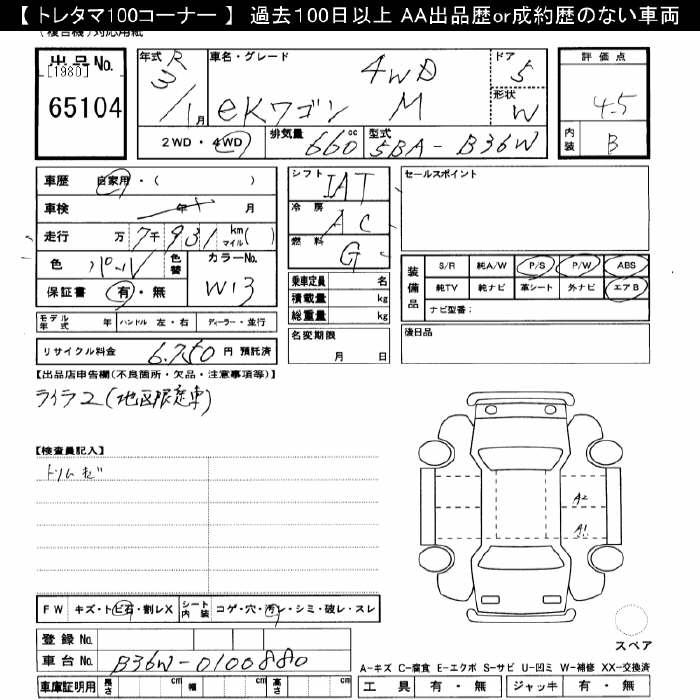 【 トレタマ100コーナー 】 過去100日以上 AA出品歴or成約歴のない車両
(複合機)対応用紙
出品No.
[1980]
65104
年式 R 3/1月
車名・グレード
4WD
eKワゴン M
ドア 5
形状 W
2WD・4WD
排気量 660 cc
型式 5BA-B36W
評価点
4.5
内装 B
車歴 自家用・( )
車検 年 月
走行 万 7千 931 km マイル( )
色 パール 色替
カラーNo. W13
保証書 有・無
モデル年式 年 ハンドル 左・右 ディーラー・並行
リサイクル料金 6.750 円 預託済
シフト IAT
冷房 AC
燃料 G
乗車定員 名
積載量 kg
総重量 kg
名変期限
月 日
セールスポイント
装備品
S/R 純A/W P/S P/W ABS
純TV 純ナビ 革シート 外ナビ エアB
ナビ型番:
後日品
【出品店申告欄(不良箇所・欠品・注意事項等)】
(地区限定車)
【検査員記入】
トリムキズ
A2
A1
FW キズ・トビ石・割レX
シート内装 コゲ・穴・汚レ・シミ・破レ・スレ
登録No.
車台No. B36W-0100880
車庫証明用 長さ cm 幅 cm 高さ cm
スペア
A-キズ C-腐食 E-エクボ S-サビ U-凹ミ W-補修 XX-交換済
工具 有・無 ジャッキ 有・無